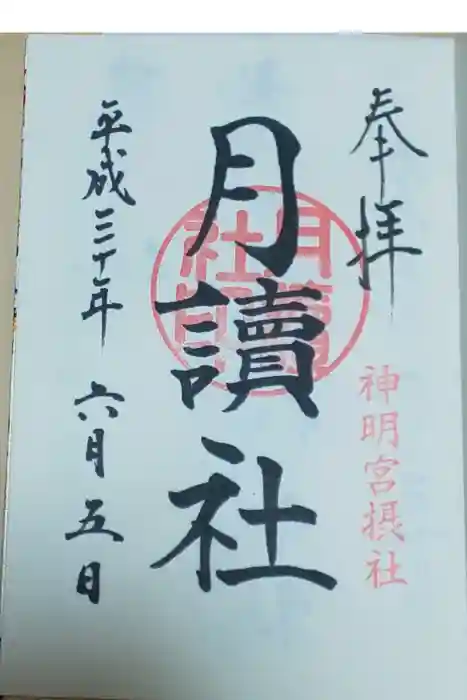 奉拝
神明宮摂社
月讀社
月讀社印
平成三十年六月五日